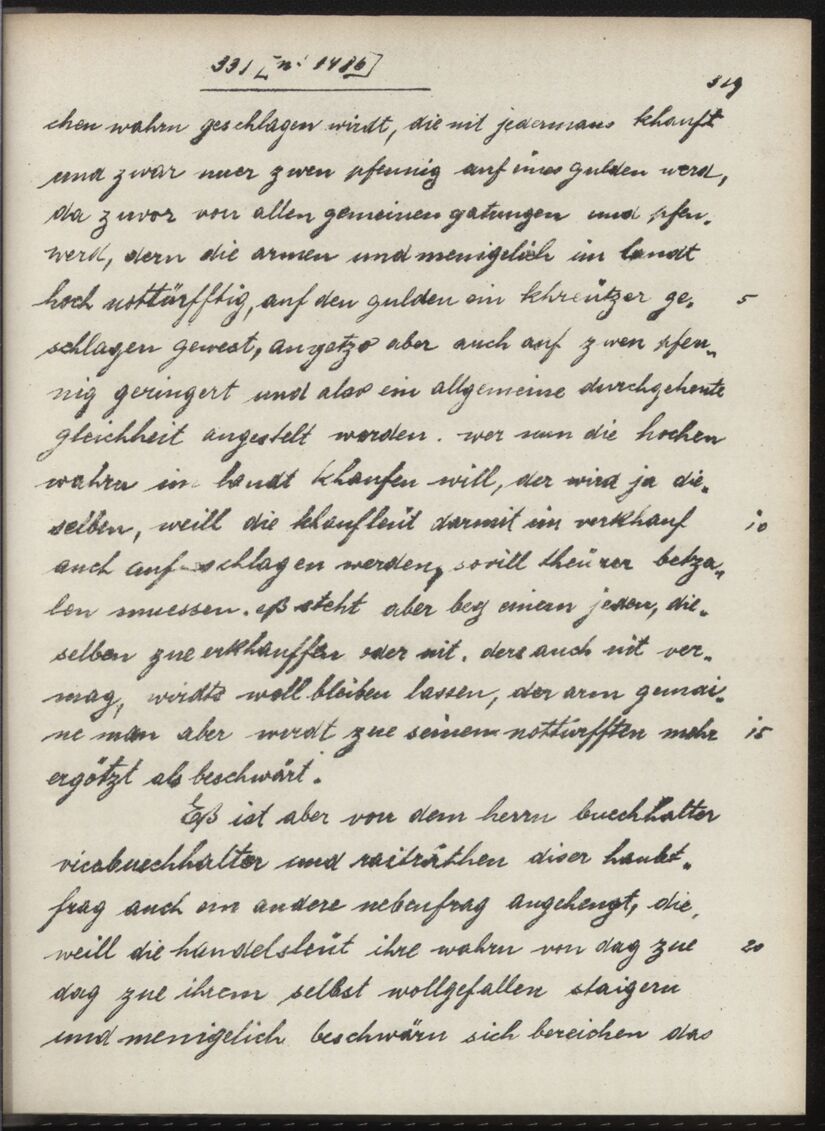 331 [n: 1486]
319
chen wahrn geschlagen wirdt, die nit jedermans khauft
und zwar nuer zwen pfennig auf eines gulden werd,
da zuvor von allen gemeinen gatungen und pfen-
werd, dern die armen und menigelich im landt
hoch nottürfftig, auf den gulden ein khreützer ge- 5
schlagen gewest, anyetzo aber auch auf zwen pfen-
nig geringert und also ein allgemeine durchgehente
gleichheit angestelt worden. wer nun die hochen
wahrn im landt khaufen will, der wird ja die-
selben, weill die khaufleüt darmit im verkhauf 10
auch auf-schlagen werden, sovill theürer betza-
len muessen. eß steht aber bey einem jeden, die-
selben zue erkhauffen oder nit. ders auch nit ver-
mag, wirdts woll bleiben lassen, der arm gemai-
ne man aber wirdt zue seinen notturfften mehr 15
ergötzt als beschwärt.
Eß ist aber von dem herrn buechhalter
vicebuechhalter und raiträthen diser haubt-
frag auch ein andere nebenfrag angehengt, die,
weill die handelsleüt ihre wahrn von dag zue 20
dag zue ihrem selbst wollgefallen staigern
und menigelich beschwärn sich bereichen das